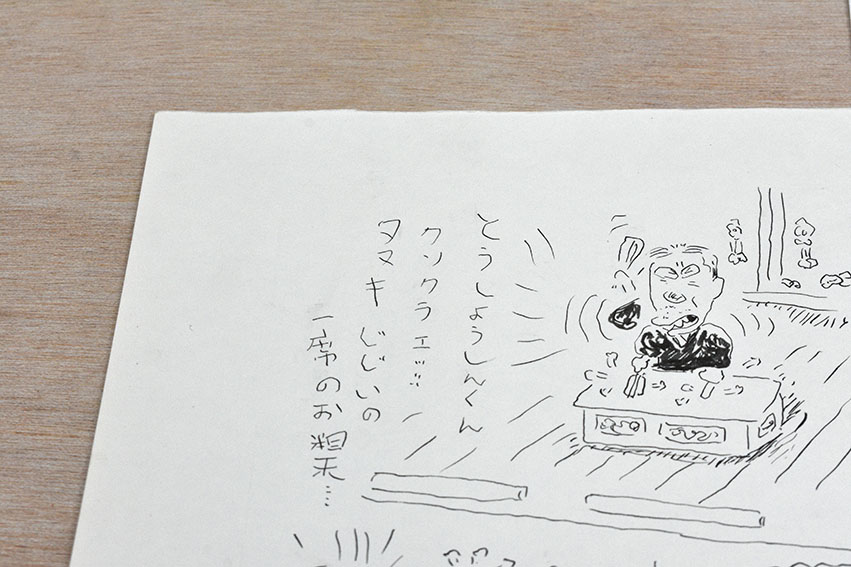 とうしょうしんくん
クソクラエッ…
タマキじじいの
一席のお粗末…